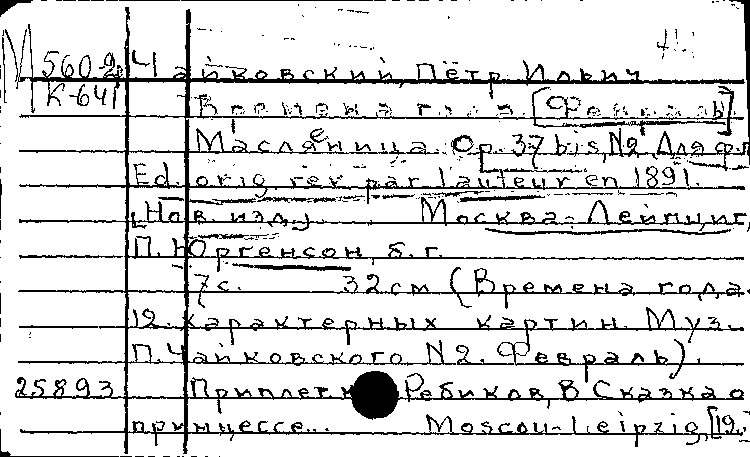 М 560-2
К-641
Чайковский, Пётр Ильич
Времена года. [Февраль].
Масляница. Ор. 37 bis, N2. Для ф.п
Ed. orig. rev. par l'auteur en 1891.
[Нов. изд.]. Москва-Лейпциг,
П. Юргенсон, б. г.
7 с. 32 см (Времена года.
12 характерных картин. Муз.
П. Чайковского N2. Февраль).
25893 Приплет к Ребиков, В Сказка о
принцессе... Moscou-Leipzig, [19.